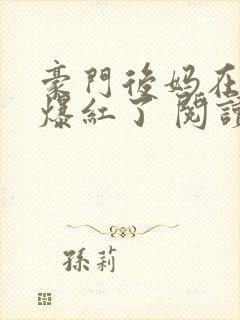 豪門後媽在
爆紅了 閱讀
孫莉